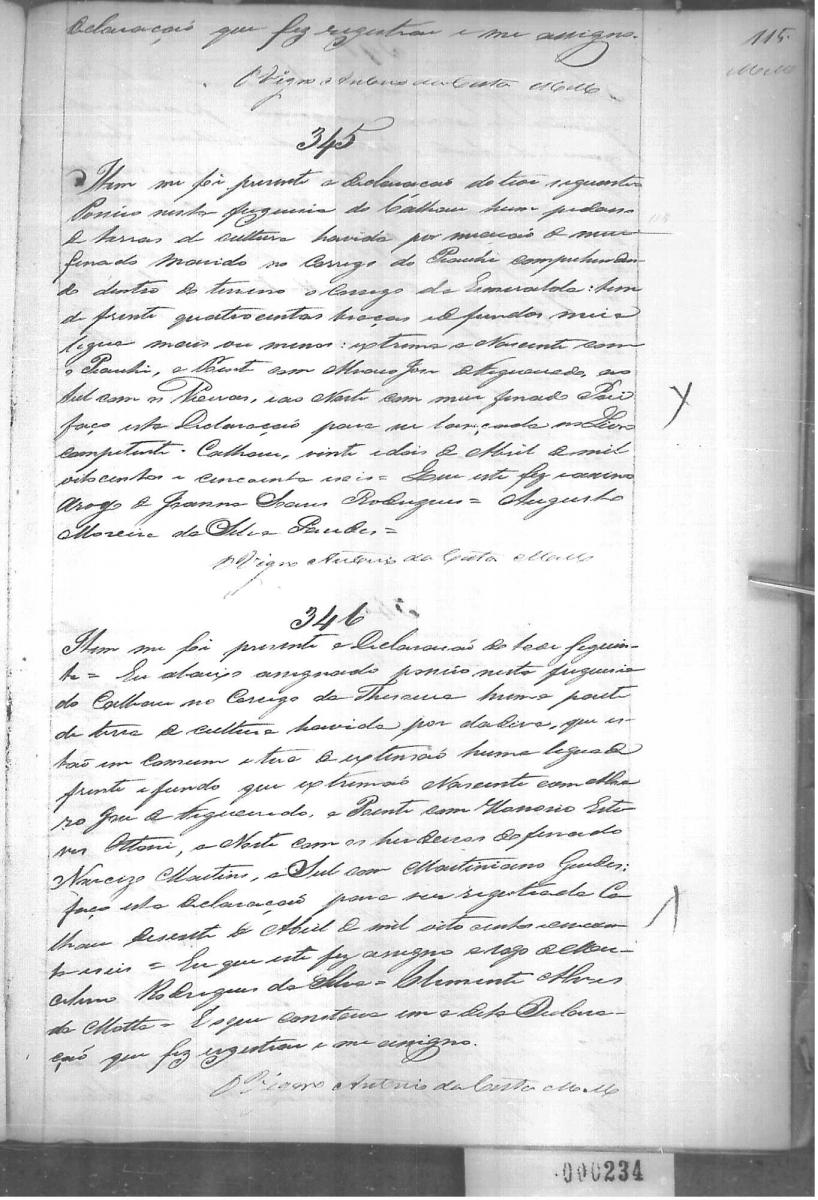 Declaração que fez registrar e me assigno.
115.
O Vigrº Antonio da Costa Mello
345
Item me foi presente a Declaração do teor seguinte
Possúo nesta freguesia do Calhau hum pedaso
de terras de cultura havida por meiação de meu
finado Marido no Corrego do Piauhi comprehenden-
do dentro do terreno o Corrego da Esmeralda: tem
de frente quatrocentas braças e de fundos meia
legua mais ou menos: extrema a Nascente com
o Piauhi, a Poente com Alvaro Jose de Figueredo, ao
Sul com os Vieiras, e ao Norte com meu finado Pai
faço esta Declaração para ser lançada no Livro
competente. Calhau, vinte e dois de Abril de mil
oitocentos e cincoenta e seis = Eu que este fiz e assino
arogo de Joanna Soares Rodrigues = Augusto
Moreira da Silva Paudes =
O Vigrº Antonio da Costa Mello
346
Item me foi presente a Declaração do teor seguin-
te = Eu abaixo assignado possúo nesta freguesia
do Calhau no Corrego da Thesoura huma parte
de terra de cultura havida por dadiva, que es-
tão em comum e terá de extensão huma legua de
frente e fundo que extremão Nascente com Alva
ro Jose de Figueredo, a Poente com Honorio Este
ves Ottoni, a Norte com os herdeiros do finado
Narcizo Martins, a Sul com Martiniano Guedes:
faço esta Declaração para ser registrada Ca
lhau de Abril de mil oito centos e cincoen
ta e seis = Eu que este fiz assigno a rogo de
Rodrigues da Silva = Clemente Alves
da Motta = E o que constava em a dita Declara-
ção que fez registrar e me assigno.
O Vigrº Antonio da Costa Mello
000234